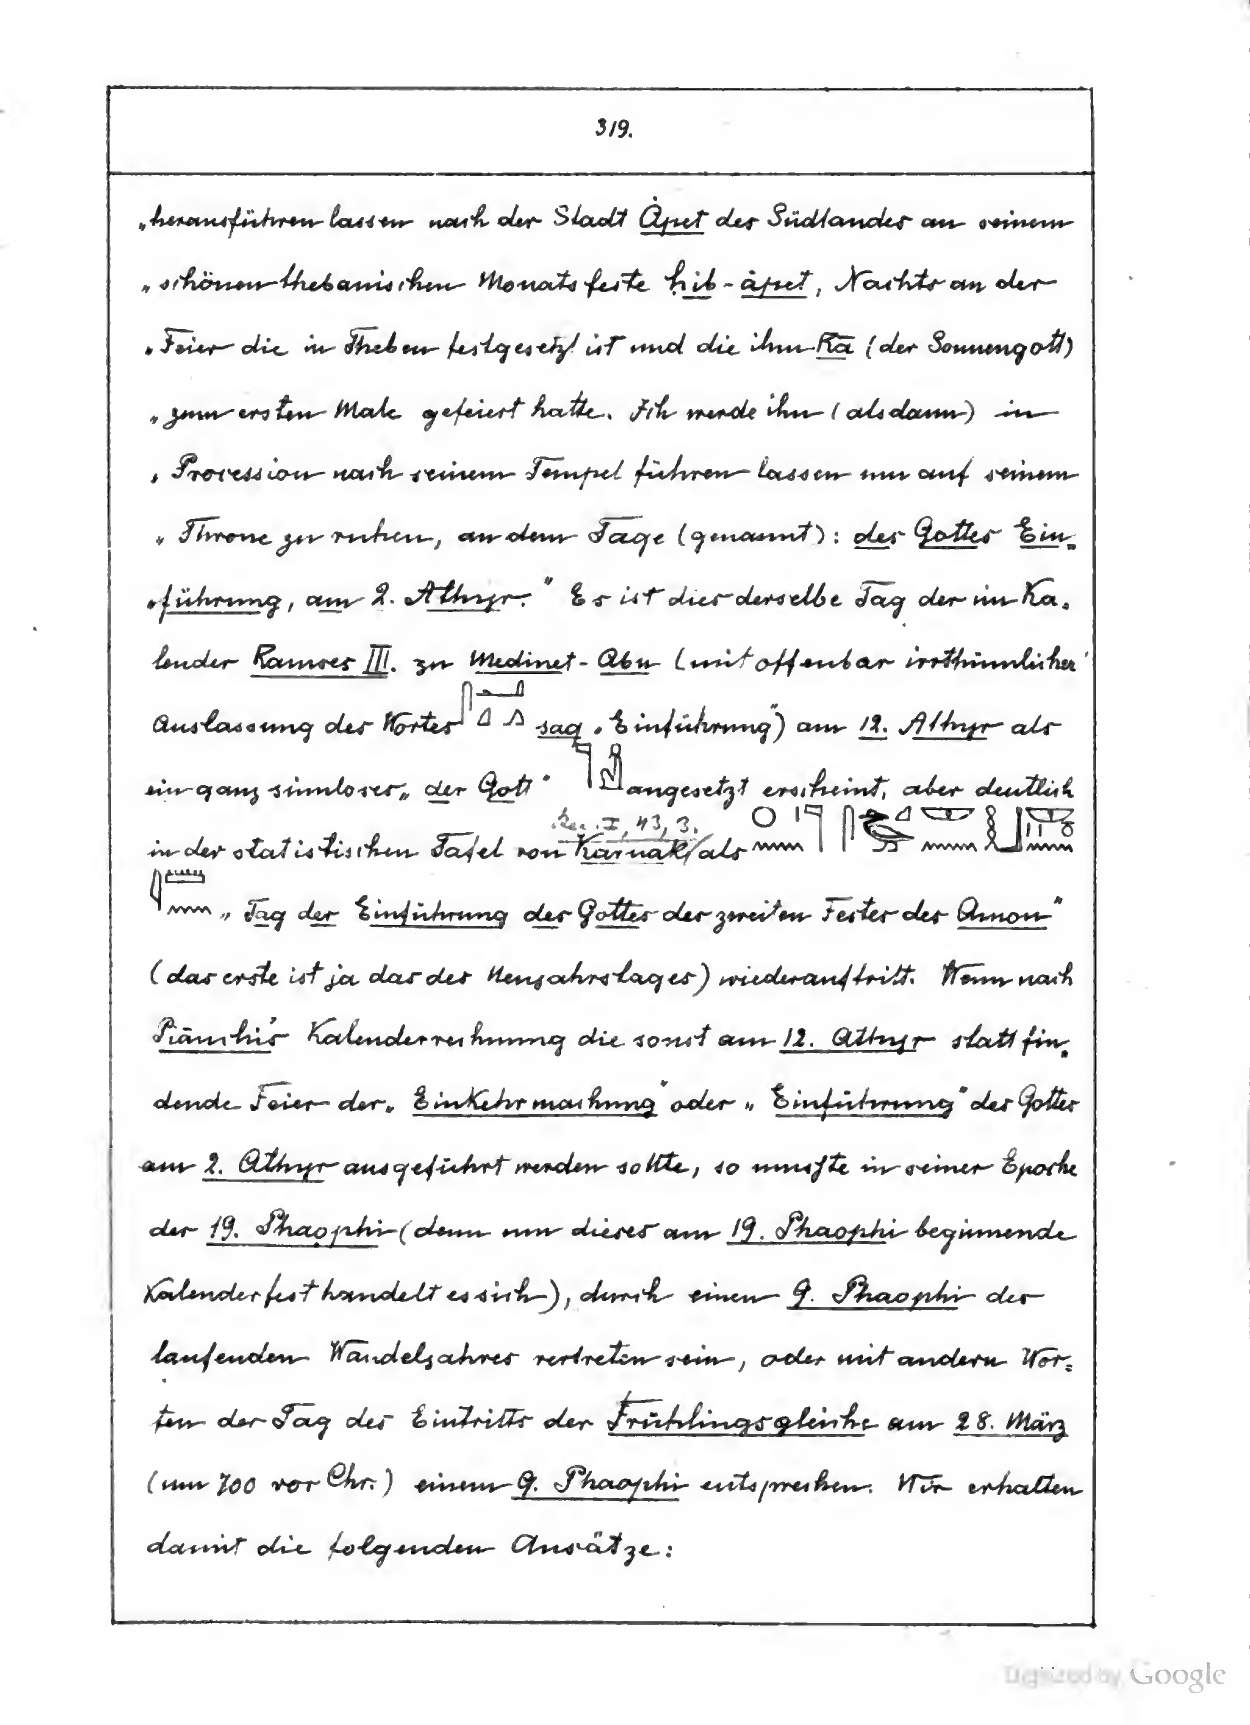 319.
„herausführen lassen nach der Stadt Àpet des Südlandes an seinem
„schönen thebanischen Monatsfeste ḥib-àpet, Nachts an der
„Feier die in Theben festgesetzt ist und die ihm Rā (der Sonnengott)
„zum ersten Male gefeiert hatte. Ich werde ihn (alsdann) in
„Procession nach seinem Tempel führen lassen um auf seinem
„Throne zu ruhen, an dem Tage (genannt): des Gottes Ein-
„führung, am 2. Athyr." Es ist dies derselbe Tag der im Ka-
lender Ramses III. zu Medinet-Abu (mit offenbar irrthümlicher
Auslassung des Wortes saq „Einführung") am 12. Athyr als
ein ganz sinnloses „der Gott" angesetzt erscheint, aber deutlich
Rec. I, 43, 3.
in der statistischen Tafel von Karnak als
„Tag der Einführung des Gottes des zweiten Festes des Amon"
(das erste ist ja das des Neujahrstages) wiederauftritt. Wenn nach
Piānchi's Kalenderrechnung die sonst am 12. Athyr stattfin-
dende Feier der „Einkehrmachung" oder „Einführung" des Gottes
am 2. Athyr ausgeführt werden sollte, so musste in seiner Epoche
der 19. Phaophi (denn um dieses am 19. Phaophi beginnende
Kalenderfest handelt es sich), durch einen 9. Phaophi des
laufenden Wandeljahres vertreten sein, oder mit andern Wor-
ten der Tag des Eintritts der Frühlingsgleiche am 28. März
(um 700 vor Chr.) einem 9. Phaophi entsprechen. Wir erhalten
damit die folgenden Ansätze:
Digitized by Google